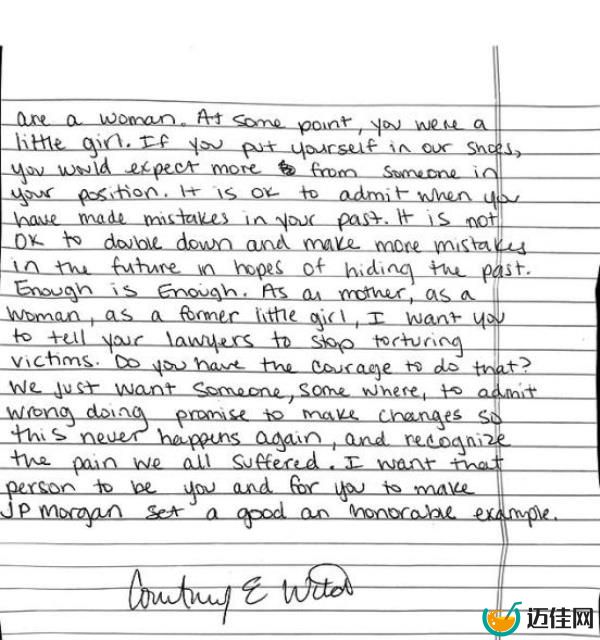 are a woman. At some point, you were a
little girl. If you put yourself in our shoes,
you would expect more from someone in
your position. It is ok to admit when you
have made mistakes in your past. It is not
OK to double down and make more mistakes
in the future in hopes of hiding the past.
Enough is Enough. As a mother, as a
woman, as a former little girl, I want you
to tell your lawyers to stop torturing
victims. Do you have the courage to do that?
We just want someone, some where, to admit
wrong doing promise to make changes so
this never happens again, and recognize
the pain we all suffered. I want that
person to be you and for you to make
JP Morgan set a good an honorable example.
E
迈佳网